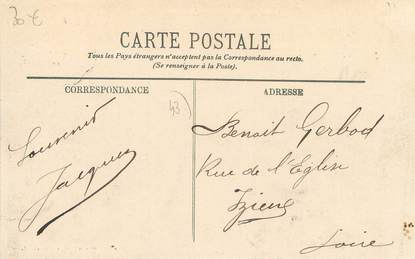 30 €
CARTE POSTALE
Tous les Pays étrangers n'acceptent pas la Correspondance au recto.
(Se renseigner à la Poste).
CORRESPONDANCE
43
ADRESSE
Souvenir
Jacques
Benoit Gerbod
Rue de l'Eglise
Izieux
Loire